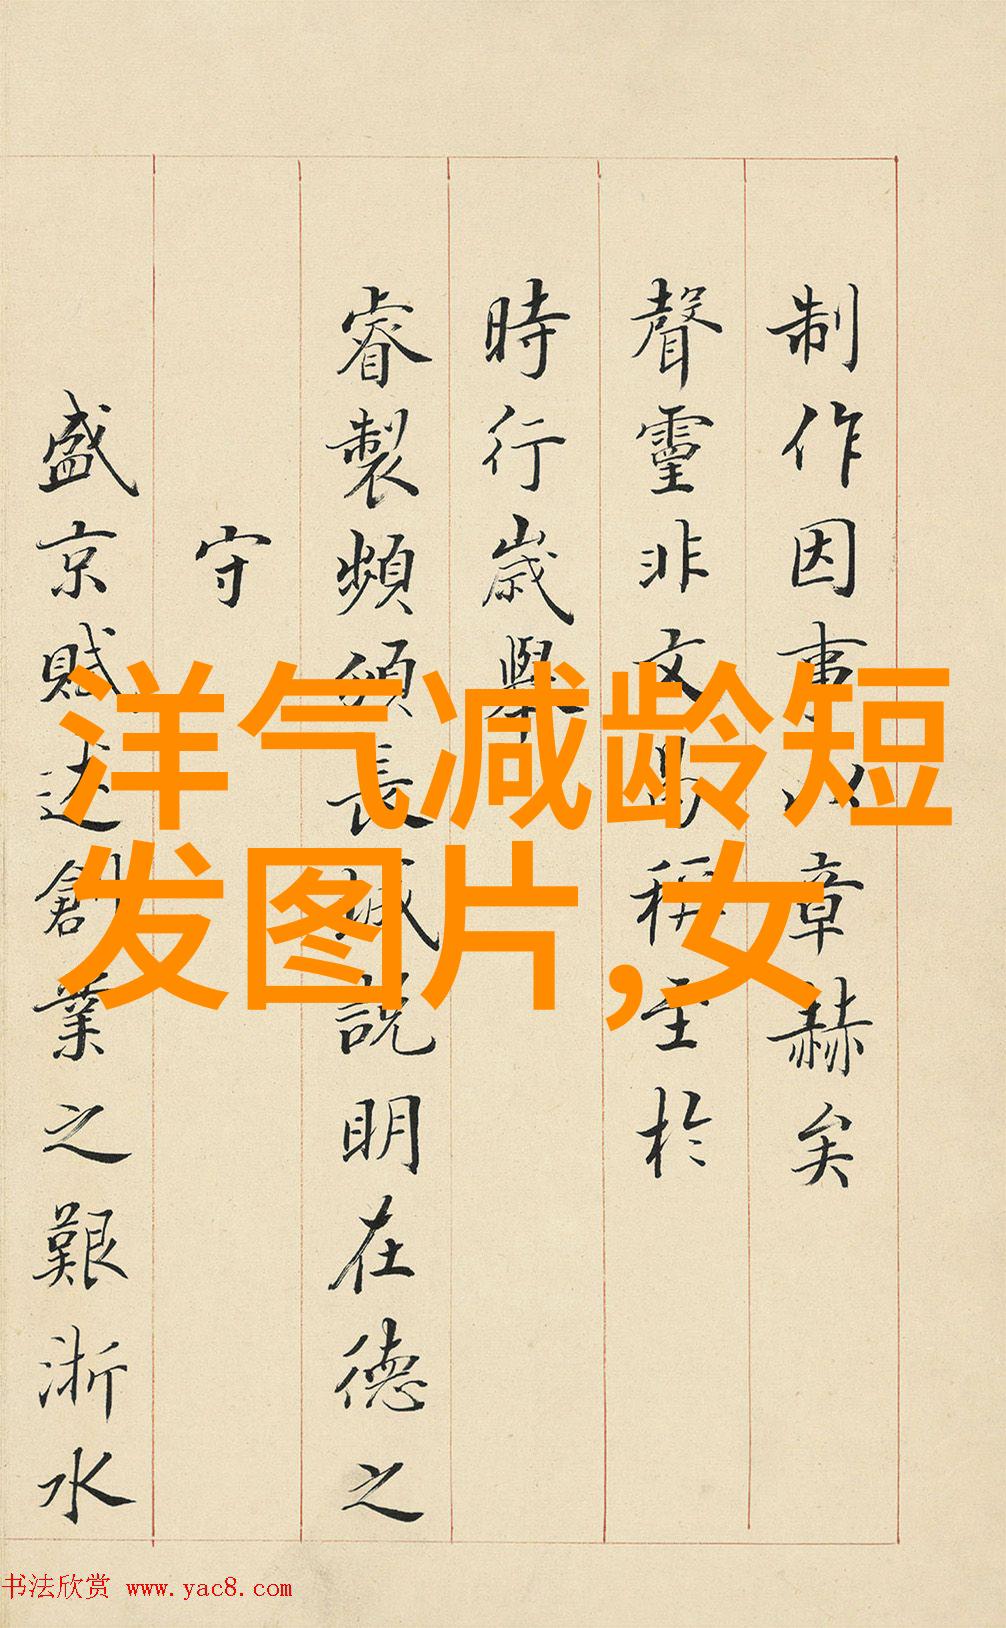 制作因事以章赫矣
聲靈非文曷稱至於
時行歲舉
睿製頻頒長誠說明在德之
守
盛京賦述創業之艱浙水
洋气减龄短
发图片,女
书法欣赏 www.yac8.com